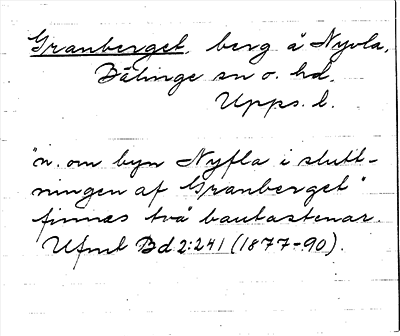 Granberget, berg å Nyvla,
Bälinge sn o. hd,
Upps. l.
"n. om byn Nyfla i slutt-
ningen af Granberget"
finnas två bautastenar.
Ufmt Bd 2:241 (1877-90).